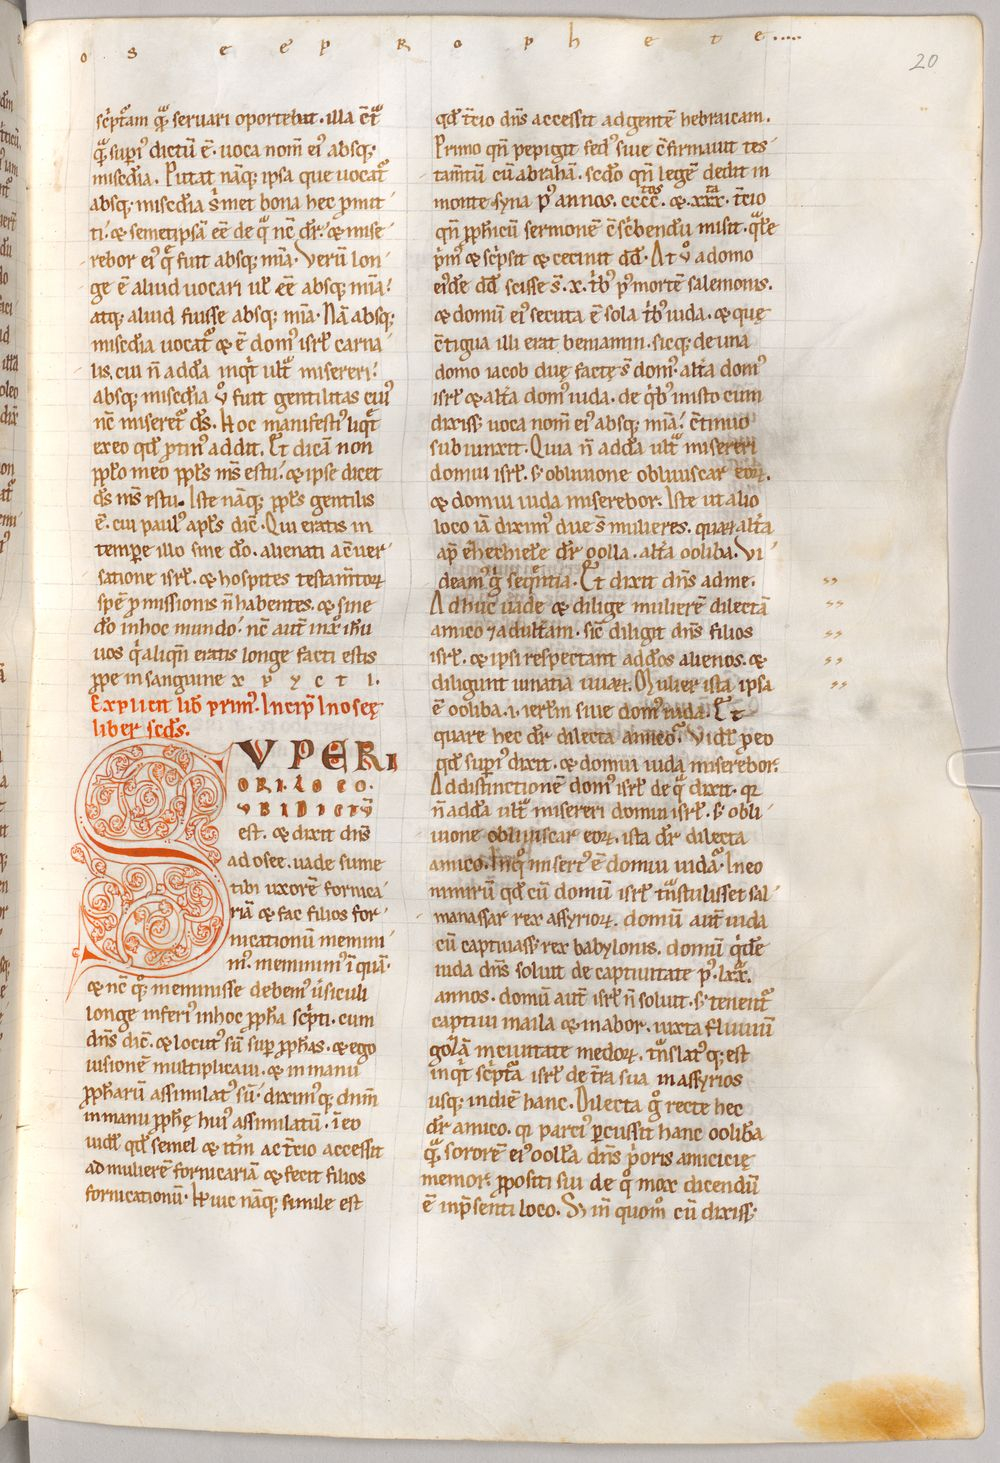 o s e e p R o p h e t e....
20
sc̄ptam quā seruari oportebat. illa c̄t
quā supi' dictū ē. uoca nom̄ ei' absq;
misc̄dia. Putat nāq; ipsa que uocat
absq; misc̄dia s̄met bona hec pmit
ti. & semetipsā eē de quā nc̄ dr̄. & mise
rebor ei' q̄ fuit absq; mia. Verū lon
ge ē aliud uocari ul' eē absq; mīa?
atq; aliud fuisse absq; mīa. Nā absq;
misc̄dia uocat' & ē dom' isrl̄ carna
lis, cui n̄ addā inqt ult' misereri?
absq; misc̄dia ů fuit gentilitas cui'
nc̄ miseret' ds̄. Hoc manifesti' liqt
ex eo qd̄ ptin' addit. Et dicā non
pplo meo ppl's m̄s es tu. & ipse dicet
ds̄ m̄s es tu. Iste nāq; ppl's gentilis
ē. cui paul' apl's dic̄. Qui eratis in
tempe illo sine dō. alienati a c̄uer
satione isrl̄. & hospites testam̄toꝝ
spē pmissionis n̄ habentes. & sine
dō in hoc mundo. nc̄ aut̄ in xp̄o ih̄u
uos q̄ aliqn̄ eratis longe facti estis
ppe in sanguine x p y c t i.
Explicit lib̄ prim'. Incip̄ In oseę
liber sc̄ds.
SVPERI
ORI. LOCO.
VBI DICTV̄
est. & dixit dn̄s
ad osee. uade sume
tibi uxorē fornica
riā & fac filios for
nicationū memini
m'. meminim' ī quā.
& nc̄ qm̄ meminisse debem' ūsiculi
longe inferi' in hoc ppha sc̄pti. cum
dn̄s dic̄. & locut' sū sup pphas. & ego
uisionē multiplicaui. & in manu
ppharū assimilat' sū. diximq; dnm̄
in manu pphę hui' assimilatū. ī eo
uidel' qd̄ semel & itm̄ ac t̄cio accessit
ad mulierē fornicariā & fecit filios
fornicationū. Huic nāq; simile est
qd̄ t̄cio dn̄s accessit ad gentē hebraicam.
Primo qn̄ pepigit fed' siue c̄firmauit tes
tam̄tū cū abrahā. sc̄do qn̄ legē dedit in
monte syna p' annos. cccc. & .xxx. t̄cio
qn̄ pph̄icū sermonē c̄sc̄bendū misit. quē
pm' & sc̄psit & cecinit dd̄. At ů a domo
ei'dē dd̄ scisse s̄. x. tb̄' p' mortē salemonis.
& domū ei' secuta ē sola tb̄' iuda. & quę
c̄tigua illi erat beniamin. sicq; de una
domo iacob duę factę s̄ dom'. altā dom'
isrl̄ & altā dom' iuda. de qb' in isto cum
dixiss; uoca nom̄ ei' absq; mīa? c̄tinuo
subiunxit. Quia n̄ addā ult' misereri
domui isrl̄. s; obliuione obliuiscar eoꝝ.
& domui iuda miserebor. Iste ut alio
loco iā dixim' due s̄ mulieres. quaꝝ altā
ap̄ ezechiele dr̄ oolla. altā ooliba. Vi
deam' g̊ seq̄ntia. Et dixit dn̄s ad me.
Adhuc uade & dilige mulierē dilectā
amico ⁊ adultam. sic̄ diligit dn̄s filios
isrl̄. & ipsi respectant ad dōs alienos. &
diligunt uinatia uuaꝝ. Mulier ista ipsa
ē ooliba .i. ierlm̄ siue dom' iuda. Et
quare hec dr̄ dilecta amico? Vidē p eo
qd̄ supi' dixit. & domui iuda miserebor.
Ad distinctionē dom' isrl̄ de quā dixit. qa
n̄ addā ult' misereri domui isrl̄. s; obli
uione obliuiscar eoꝝ. ista dr̄ dilecta
amico. In q̊ misert' ē domui iuda. In eo
nimirū qd̄ cū domū isrl̄ tn̄stulisset sal
manassar rex assyrioꝝ. domū aut̄ iuda
cū captiuass; rex babylonis. domū q̄dē
iuda dn̄s soluit de captiuitate p' .lxx.
annos. domū aut̄ isrl̄ n̄ soluit. s; tenent'
captiui in aila & in abor. iuxta fluuiū
golā in ciuitate medoꝝ. tn̄slat'q; est
inqt sc̄pta isrl̄ de t̄ra sua in assyrios
usq; in diē hanc. Dilecta g̊ recte hec
dr̄ amico. qa parci' pcussit hanc oolibā
quā sororē ei' oollā dn̄s p̄oris amicicię
memor ppositi sui de q̊ mox dicendū
ē in p̄senti loco. S; in̄ quom̊ cū dixiss;